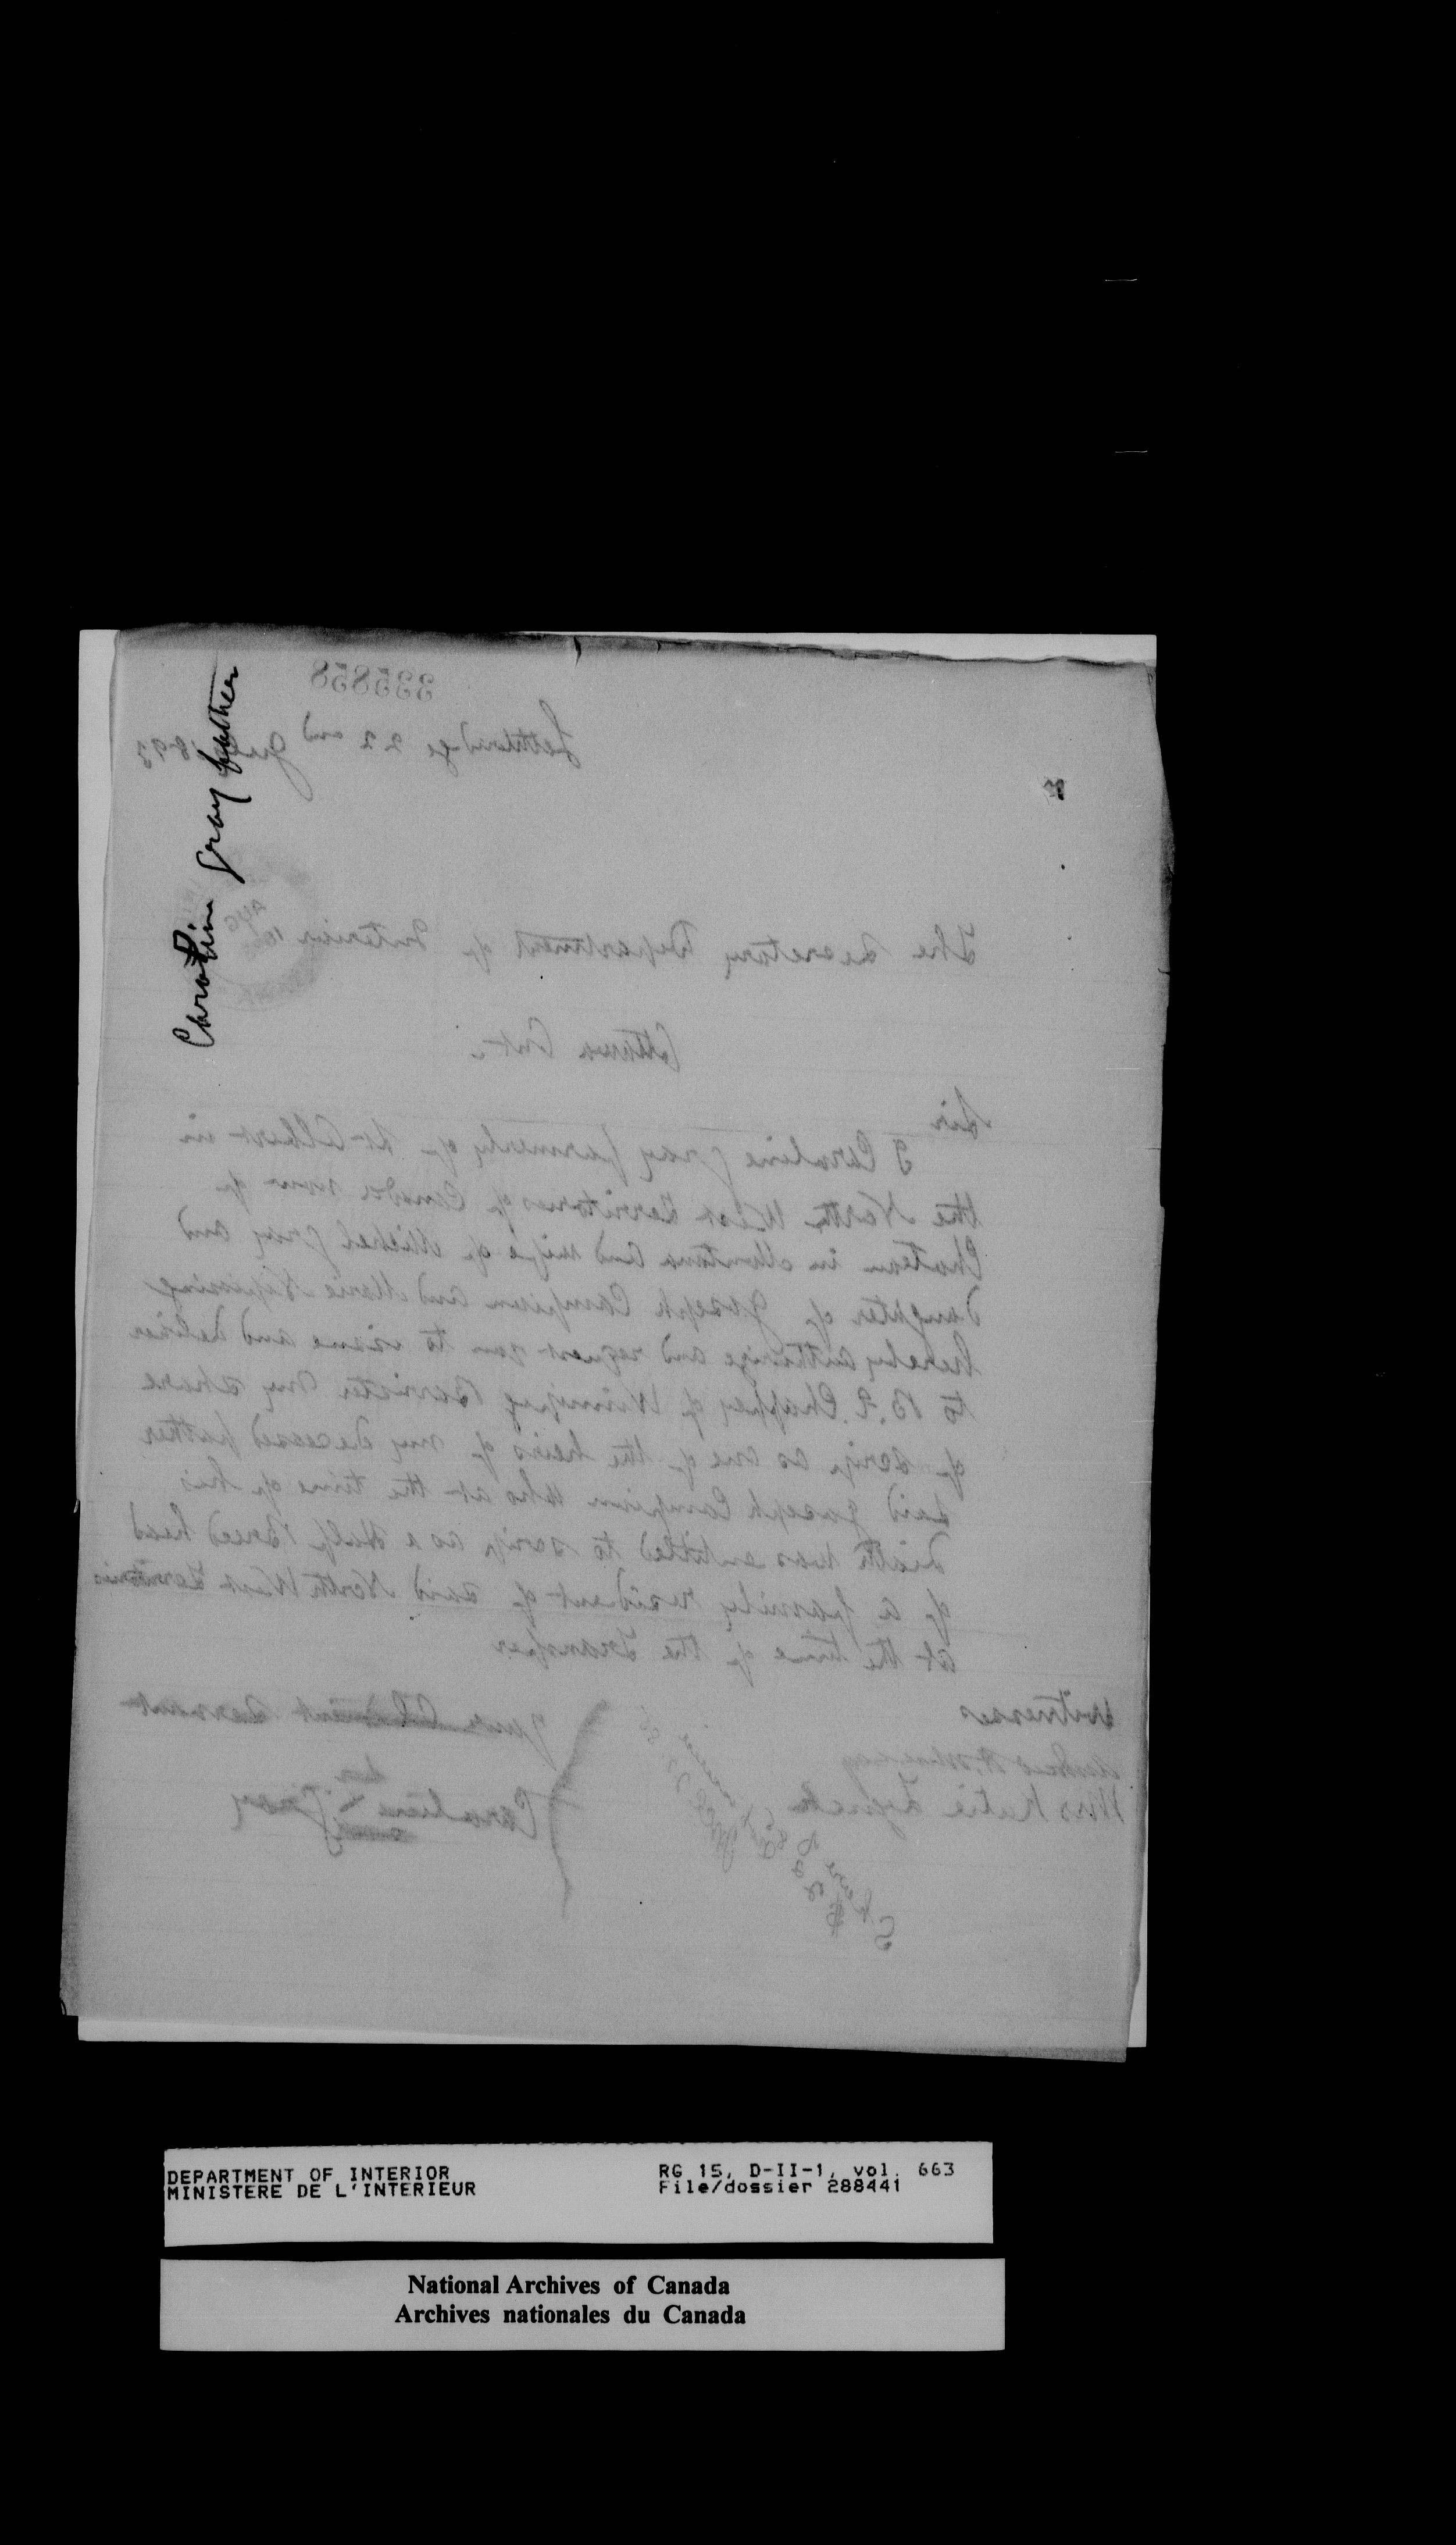 Caroline Gray father
335858
Lethbridge 22nd July 1893
The Secretary Department of Interior
Ottawa Ont.
Sir
I Caroline Gray formerly of St Albert in
the North West Territories of Canada now of
Choteau in Montana and wife of Michel Gray and
daughter of Joseph Campion and Marie Nipissing
hereby authorize and request you to issue and deliver
to B. E. Chaffey of Winnipeg Barrister my share
of scrip as one of the heirs of my deceased father
said Joseph Campion who at the time of his
death was entitled to scrip as a Half Breed head
of a family resident of said North West Territories
at the time of the Transfer
Witnesses
Your Obedient Servant
Mrs Katie Lynch
her
Caroline x Gray
Share
DEPARTMENT OF INTERIOR
MINISTERE DE L'INTERIEUR
RG 15, D-II-1, vol. 663
File/dossier 288441
National Archives of Canada
Archives nationales du Canada